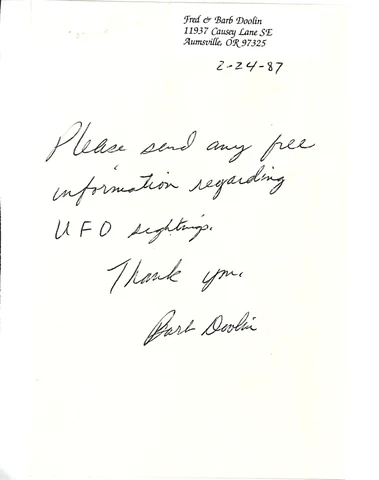 Fred & Barb Doolin
11937 Causey Lane SE
Aumsville, OR 97325
2-24-87
Please send any free
information regarding
UFO sightings.
Thank you.
Barb Doolin